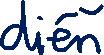 diễn